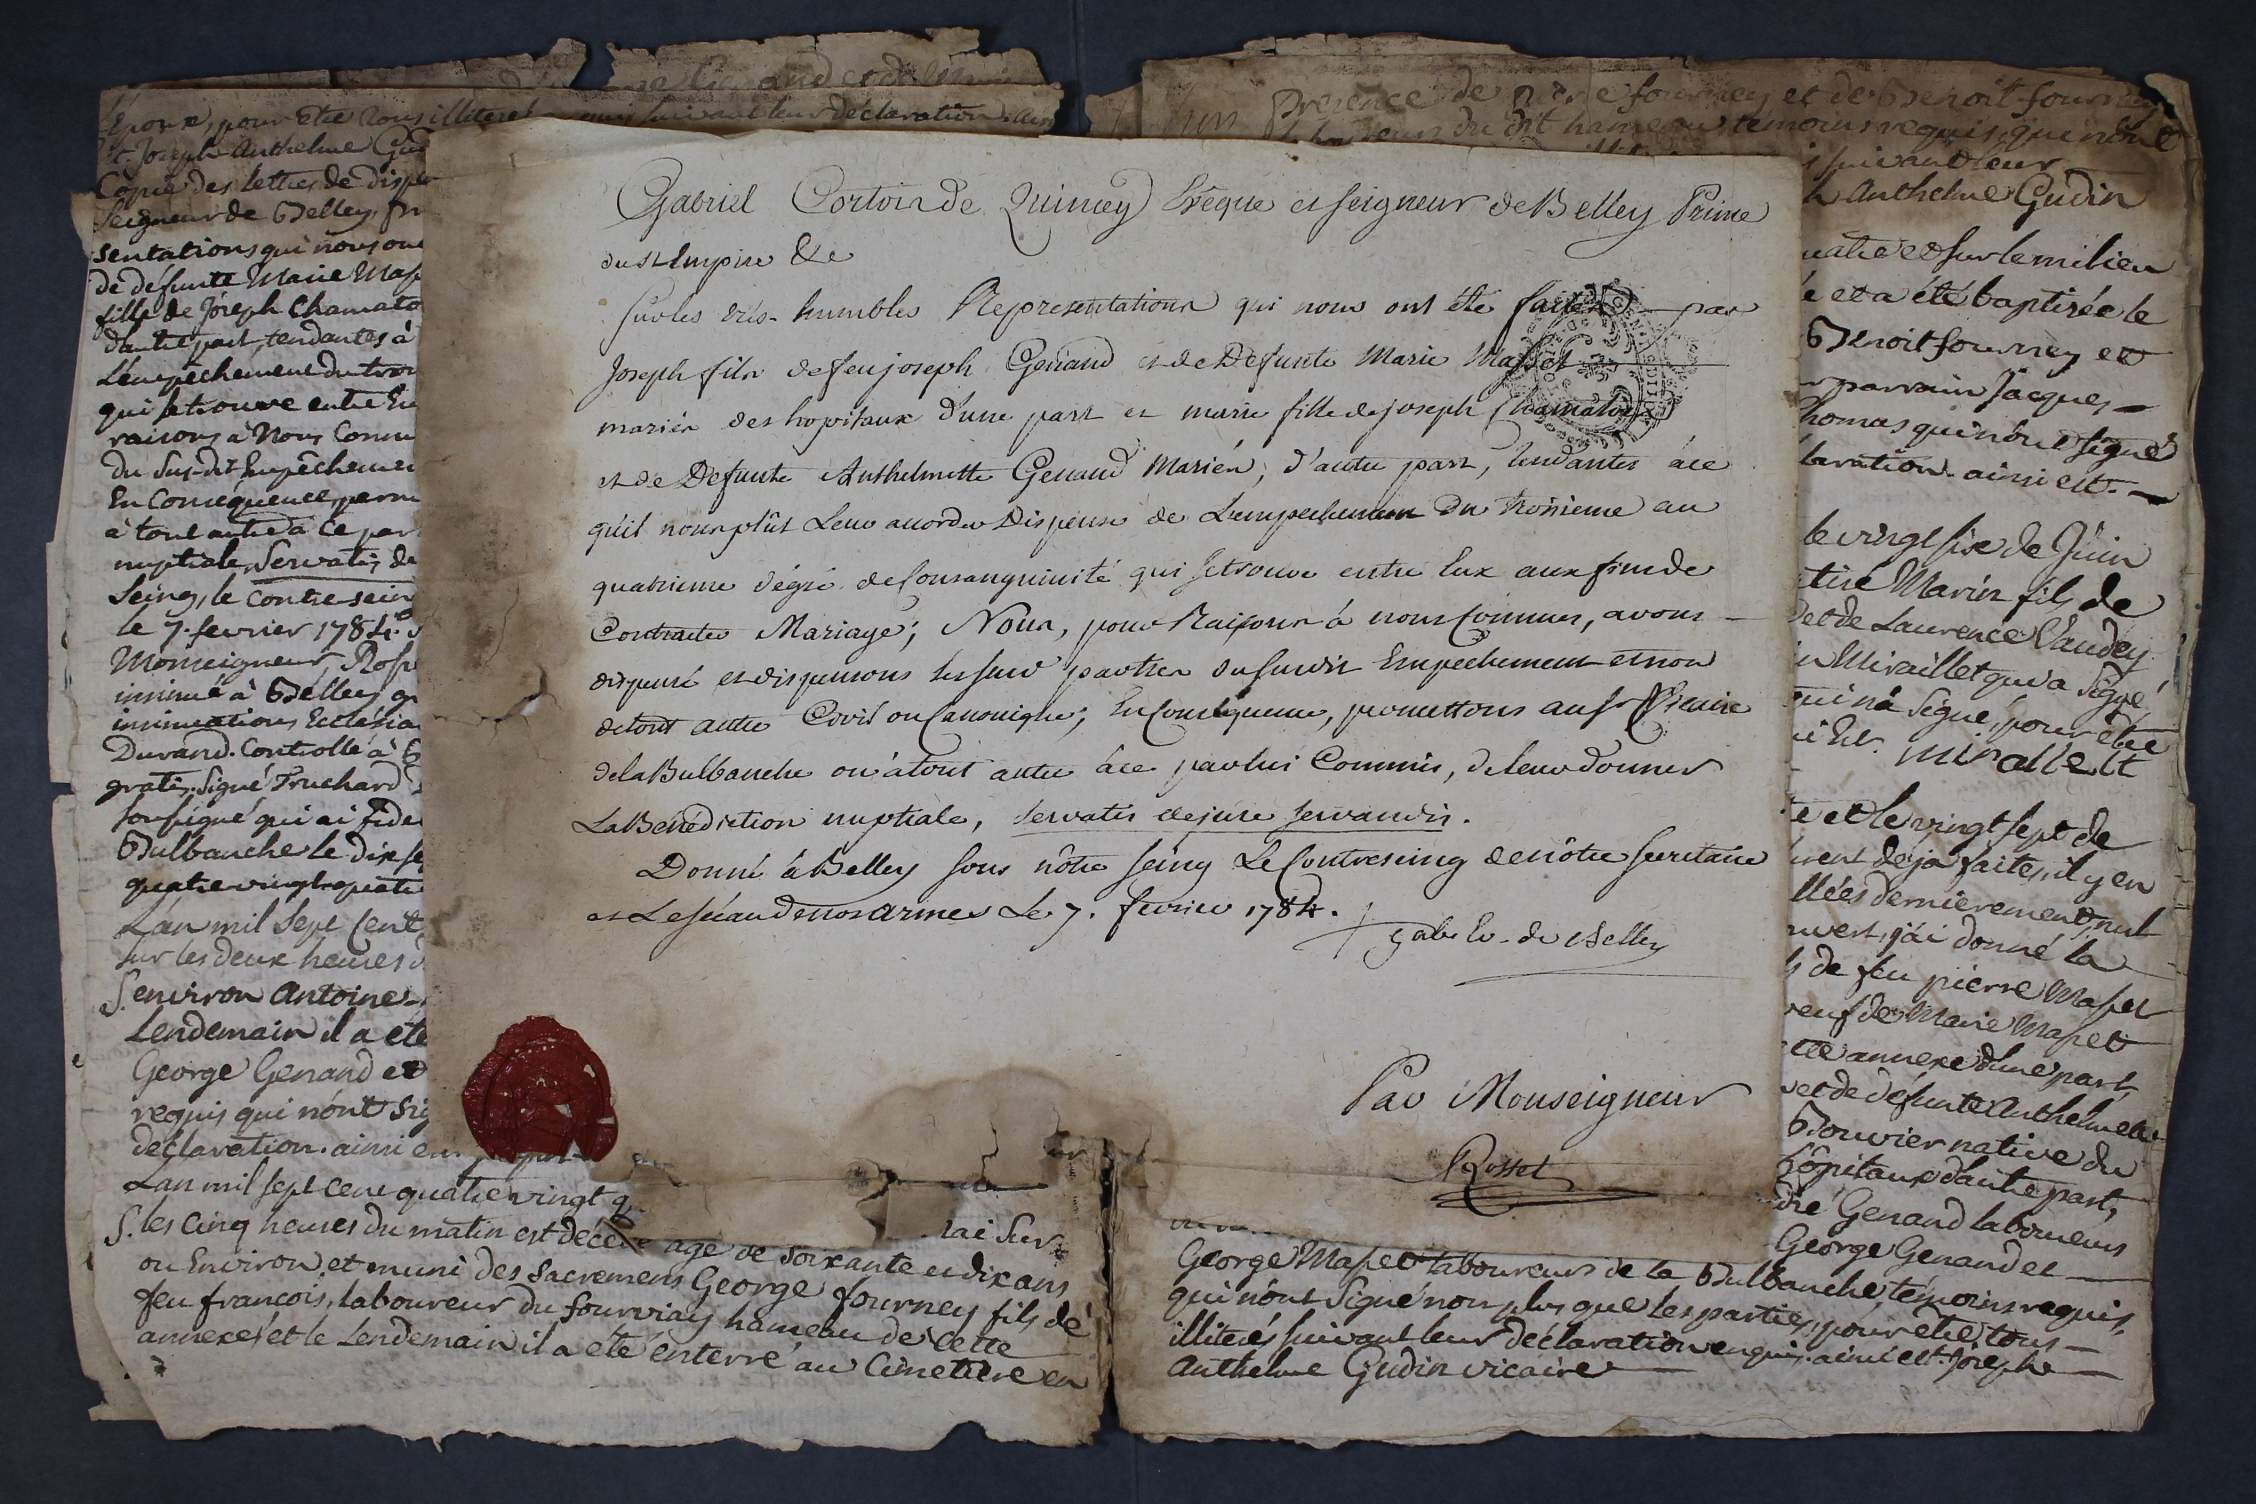 Gabriel Cortois de Quincey Evêque et seigneur de Belley Prince
du St Empire &c
sur les très-humbles Representations qui nous ont été faites par
Joseph fils de feu joseph Genand et de Defunte Marie Masset
mariés des hopitaux d'une part et marie fille de joseph Chamaton
et de Defunte Anthelmette Genand Mariés, d'autre part, tendantes à ce
qu'il nous plût Leur accorder Dispense de L'empechement Du troisieme au
quatrieme dégré de Consanguinité qui se trouve entre Eux aux fins de
Contracter Mariage; Nous, pour Raisons à nous Connues, avons
dispensé et dispensons les sus parties du susdit Empechement et non
de tout autre Civil ou Canonique; En Conséquence, permettons au sr Vicaire
de la Bulbanche ou à tout autre à ce par lui Commis, de leur donner
La Bénédiction nuptiale, servatis de jure servandis.
Donné à Belley sous nôtre seing Le Contreseing de nôtre secretaire
et Le sceau de nos armes Le 7. fevrier 1784.
+ gab. Ev. de Belley
Par Monseigneur
Rosset
Epoux, pour être tous suivant leur déclaration. ain
Joseph Anthelme Gud
Copie des lettres de dispe
Seigneur de Belley, Pr
sentations qui nous on
de défunte Marie Mas
fille de Joseph Chamato
d'autre part, tendantes à
L'empêchement du trois
qui se trouve entre Eu
raisons à Nous Connu
du Sus-dit Empêchemen
En Conséquence, perm
à tout autre à Ce par
nuptiale, Servatis de
Seing, le Contre-sein
le 7. fevrier 1784.
Monseigneur, Ross
insinué à Belley
insinuations Ecclésia
Durand. Controllé à B
gratis. Signé Fruchard
soussigné qui ai fide
Bulbanche le dix se
quatre vingt quatre
L'an mil Sept Cent
sur les deux heures d
S. environ Antoine
Lendemain il a été
George Genand et
requis qui n'ont sig
declaration. ainsi
L'an mil sept cent quatre vingt q
mai sur
S. les Cinq heures du matin est décédé agé de soixante et dix ans
ou Environ et muni des sacremens George fourney fils de
feu françois, laboureur du fourviay hameau de Cette
annexe, et le Lendemain il a été enterré au Cimetière en
présence de Pierre fourney et de Benoit fourney
laboureurs du dit hameau temoins requis, qui n'ont
suivant leur
Anthelme Gudin
quatre et sur le milieu
et a été baptisée le
Benoit fourney et
parrain Jacques
Thomas qui n'ont signé
laration. ainsi est.
le vingt six de Juin
Marin fils de
et de Laurence Vaudey
Miraillet qui a signé
qui n'a signé, pour être
Est. mirallelt
et le vingt sept de
urent deja faites, il y en
llées dernièrement, nul
uvert, j'ai donné la
s de feu pierre Masset
veuf de Marie Masset
tte annexe d'une part,
et de défunte Anthelmette
Bouvier native du
hôpitaux d'autre part,
dré Genand laboureurs
George Genand et
George Masset laboureurs de la Bulbanche, témoins requis,
qui n'ont signé non plus que les parties, pour être tous
illiterés suivant leur déclaration enquis. ainsi est. Joseph
Anthelme Gudin vicaire